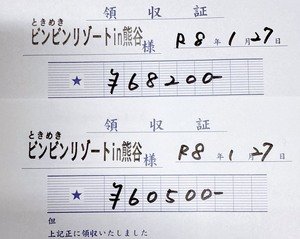 領収証
ときめき
ビンビンリゾートin熊谷 様 R8年1月27日
★ ¥68200-
領収証
ときめき
ビンビンリゾートin熊谷 様 R8年1月27日
★ ¥60500-
但
上記正に領収いたしました